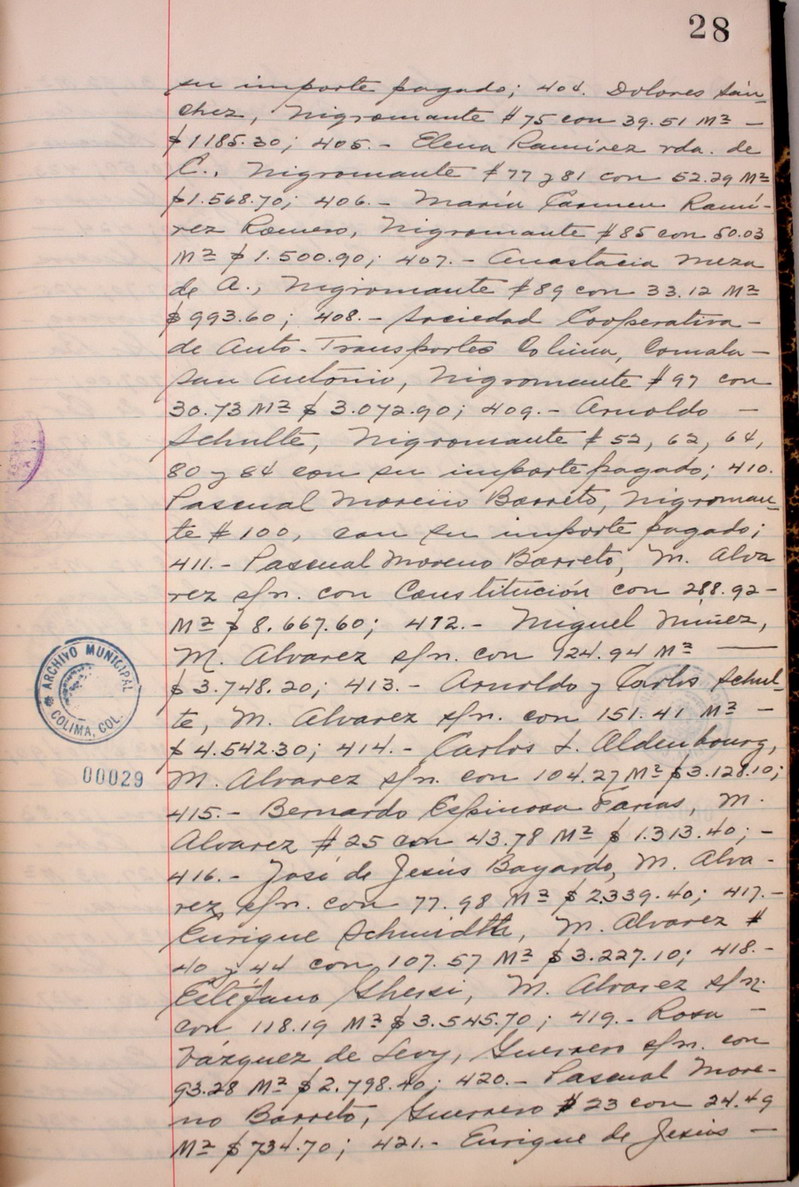 28
su importe pagado; 404. Dolores Sán-
chez, Nigromante # 75 con 39.51 M² -
$1185.30; 405.- Elena Ramírez vda. de
C., Nigromante # 77 y 81 con 52.29 M²
$1.568.70; 406.- María Carmen Ramí-
rez Romero, Nigromante # 85 con 50.03
M² $ 1.500.90; 407.- Anastacia Meza
de A., Nigromante # 89 con 33.12 M²
$993.60; 408.- Sociedad Cooperativa -
de Auto-Transportes Colima, Comala -
San Antonio, Nigromante # 97 con
30.73 M² $ 3.072.90; 409.- Arnoldo -
Schulte, Nigromante # 52, 62, 64,
80 y 84 con su importe pagado; 410.
Pascual Moreno Barreto, Nigroman-
te # 100, con su importe pagado;
411.- Pascual Moreno Barreto, M. Alva
rez s/n. con Constitución con 288.92 -
M² $ 8.667.60; 412.- Miguel Núñez,
M. Alvarez s/n. con 124.94 M² -
$3.748.20; 413.- Arnoldo y Carlos Schul-
te, M. Alvarez s/n. con 151.41 M² -
$ 4.542.30; 414.- Carlos L. Oldenbourg,
M. Alvarez s/n. con 104.27 M² $3.128.10;
415.- Bernardo Espinosa Farias, M.
Alvarez # 25 con 43.78 M² $ 1.313.40; -
416.- José de Jesús Bayardo, M. Alva-
rez s/n. con 77.98 M² $ 2339.40; 417.-
Enrique Schmidth, M. Alvarez #
40 y 44 con 107.57 M² $ 3.227.10; 418.-
Estéfano Ghersi, M. Alvarez s/n.
con 118.19 M² $ 3.545.70; 419.- Rosa -
Vázquez de Levy, Guerrero s/n. con
93.28 M² $ 2.798.40; 420.- Pascual More-
no Barreto, Guerrero # 23 con 24.49
M² $ 734.70; 421.- Enrique de Jesús -
ARCHIVO MUNICIPAL
COLIMA, COL.
00029